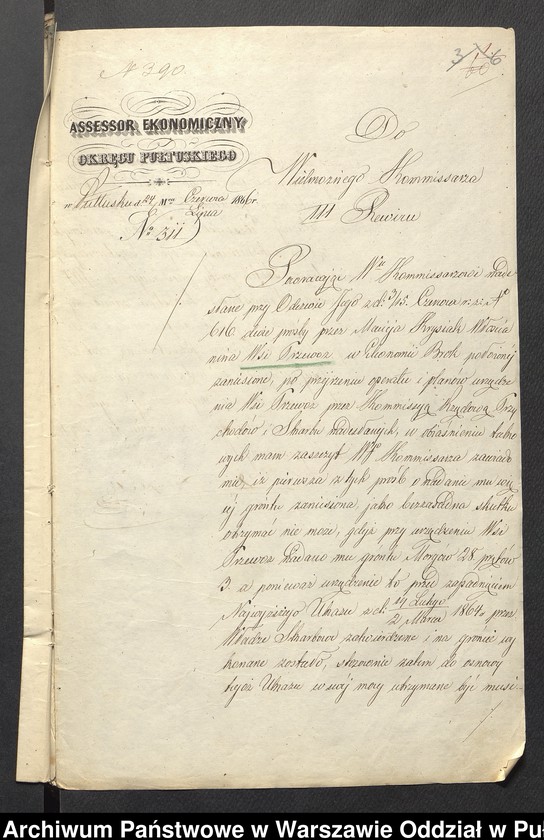 N 390.
3 1/60 6
ASSESSOR EKONOMICZNY
OKRĘGU PUŁTUSKIEGO
w Pułtusku d. 24 Mca Czerwca 1866 r.
6 Lipca
No 311
Do
Wielmożnego Kommissarza
III Rewiru
Powracając Wmu Kommissarzowi nade
słane przy Odezwie Jego z d. 3/15. Czerwca r. b. No
616 dwie prośby przez Macieja Krysiak Włościa
nina Wsi Przewoz w Ekonomii Brok położonej
zaniesione, po przejrzeniu operatu i planów urządze
nia Wsi Przewoz przez Kommissyą Rządową Przy
chodów i Skarbu nadesłanych, w objaśnieniu tako
wych mam zaszczyt Wgo Kommissarza zawiado
mić, iż pierwsza z tych prośb o nadanie mu wię
cej gruntu zaniesiona, jako bezzasadna skutku
otrzymać nie może, gdyż przy urządzeniu Wsi
Przewoz nadano mu gruntu Morgów 28 prętów
3. a ponieważ urządzenie to przed zapadnięciem
Najwyższego Ukazu z d. 19 Lutego / 2 Marca 1864 przez
Władze Skarbowe zatwierdzone i na gruncie wy
konane zostało, stosownie zatem do osnowy
tegoż Ukazu w swej mocy utrzymane być musi.
Archiwum Państwowe w Warszawie Oddział w Puł